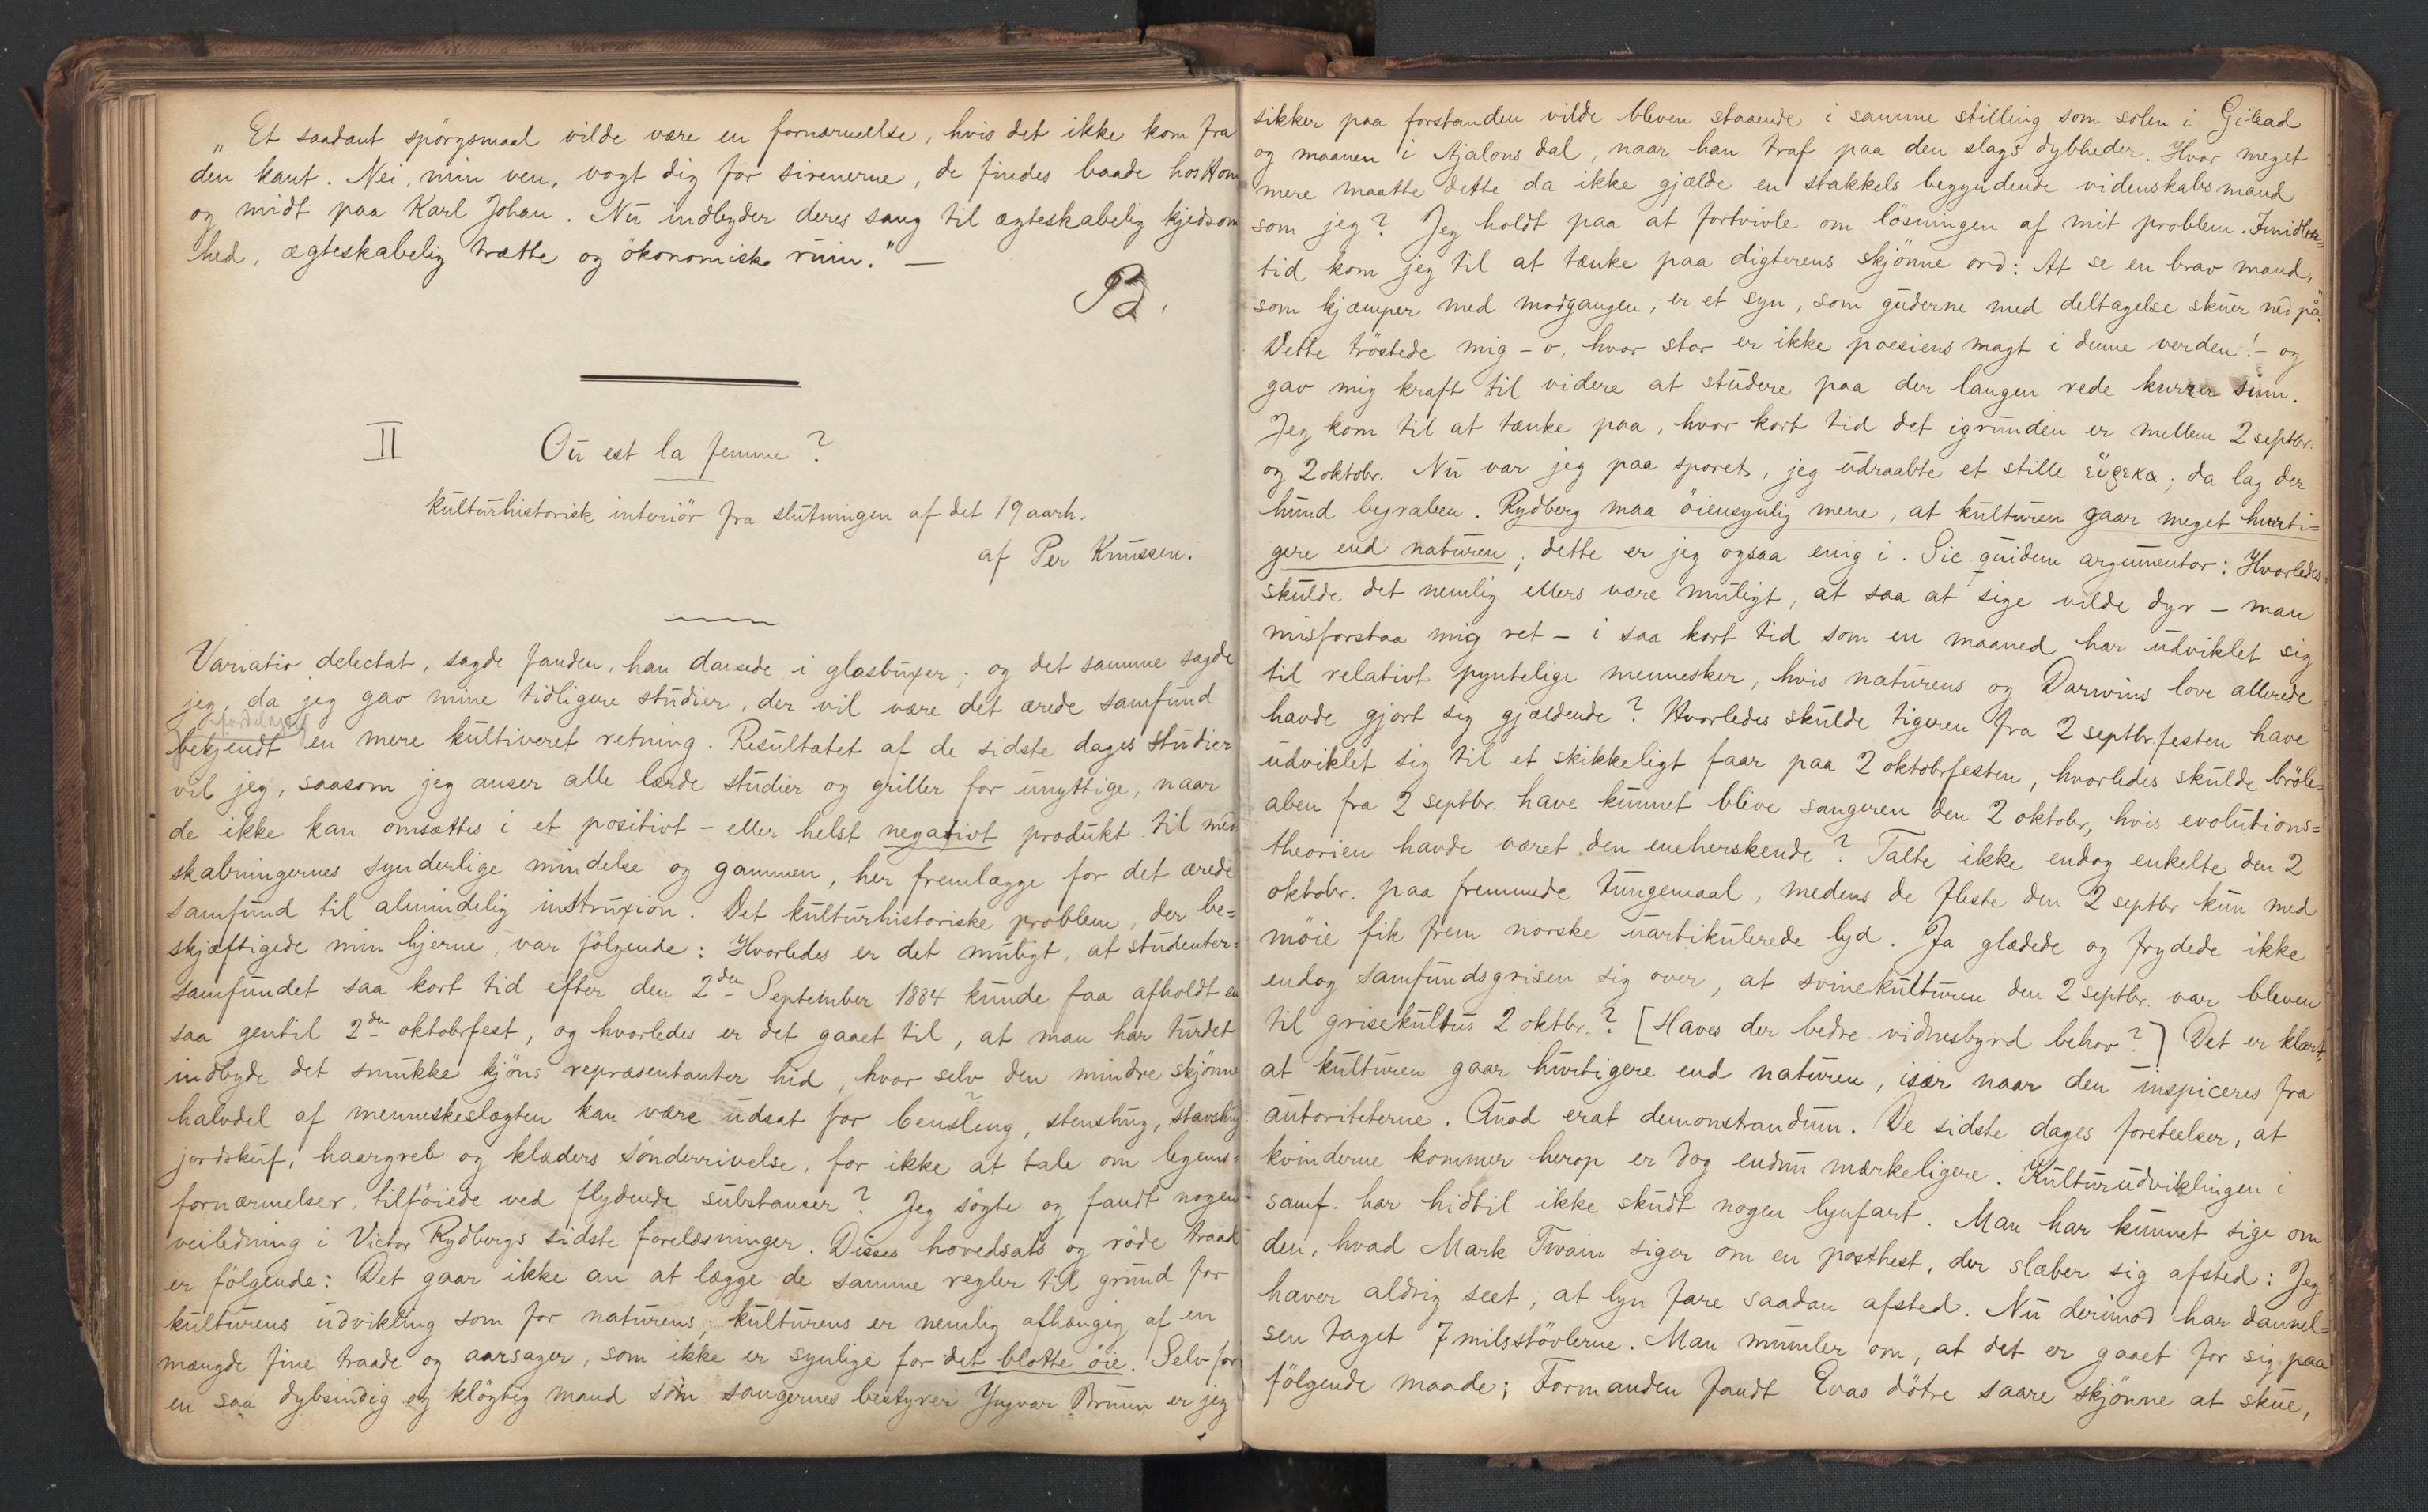 „Et saadant spörgsmaal vilde være en fornærmelse, hvis det ikke kom fra
den kant. Nei, min ven, vogt dig for sirenerne, de findes baade hos Hom
og midt paa Karl Johan. Nu indbyder deres sang til ægteskabelig kjedsom
hed, ægteskabelig trætte og ökonomisk ruin." —
II Ou est la femme?
Kulturhistorisk interiör fra slutningen af det 19 aarh.
af Per Knussen.
Variatio delectat, sagde fanden, han dansede i glasbuxer; og det samme sagde
jeg, da jeg gav mine tidligere studier, der vil være det ærede samfund
bekjendt en mere kultiveret retning. Resultatet af de sidste dages studier
vil jeg, saasom jeg anser alle lærde studier og griller for unyttige, naar
de ikke kan omsættes i et positivt - eller helst negativt produkt til med
skabningernes synderlige mindelse og gammen, her fremlægge for det ærede
samfund til almindelig instruxion. Det kulturhistoriske problem, der be=
skjæftigede min hjerne, var fölgende: Hvorledes er det muligt, at studenter=
samfundet saa kort tid efter den 2den September 1884 kunde faa afholdt en
saa gentil 2den oktobrfest, og hvorledes er det gaaet til, at man har turdet
indbyde det smukke kjöns repræsentanter hid, hvor selv den mindre skjönne
halvdel af menneskeslægten kan være udsat for benslæng, stenslyng, stavslyng
jordskuf, haargreb og klæders sönderrivelse, for ikke at tale om legems=
fornærmelser, tilföiede ved flydende substanser? Jeg sögte og fandt nogen
veiledning i Victor Rydbergs sidste forelæsninger. Disses hovedsats og röde traad
er fölgende: Det gaar ikke an at lægge de samme regler til grund for
kulturens udvikling som for naturens; kulturens er nemlig afhængig af en
mængde fine traade og aarsager, som ikke er synlige for det blotte öie. Selv for
en saa dybsindig og klögtig mand som sangernes bestyrer Yngvar Bruun er jeg
sikker paa forstanden vilde bleven staaende i samme stilling som solen i Gilead
og maanen i Ajalons dal, naar han traf paa den slags dybheder. Hvor meget
mere maatte dette da ikke gjælde en stakkels begyndende videnskabsmand
som jeg? Jeg holdt paa at fortvivle om lösningen af mit problem. Imidler=
tid kom jeg til at tænke paa digterens skjönne ord: At se en brav mand,
som kjæmper med modgangen, er et syn, som guderne med deltagelse skuer ned på."
Dette tröstede mig - o, hvor stor er ikke poesiens magt i denne verden! - og
gav mig kraft til videre at studere paa der langen rede kurzen sinn.
Jeg kom til at tænke paa, hvor kort tid det igrunden er mellem 2 septbr.
og 2 oktobr. Nu var jeg paa sporet, jeg udraabte et stille εὕρεκα; da lag der
hund begraben. Rydberg maa öiensynlig mene, at kulturen gaar meget hurti=
gere end naturen; dette er jeg ogsaa enig i. Sic quidem argumentor: Hvorledes
skulde det nemlig ellers være muligt, at saa at sige vilde dyr - man
misforstaa mig ret - i saa kort tid som en maaned har udviklet sig
til relativt pyntelige mennesker, hvis naturens og Darwins love allerede
havde gjort sig gjældende? Hvorledes skulde tigeren fra 2 septbr. festen have
udviklet sig til et skikkeligt faar paa 2 oktobrfesten, hvorledes skulde bröle=
aben fra 2 septbr. have kunnet blive sangeren den 2 oktobr, hvis evolutions=
theorien havde været den eneherskende? Talte ikke endog enkelte den 2
oktobr. paa fremmede tungemaal, medens de fleste den 2 septbr kun med
möie fik frem norske uartikulerede lyd. Ja glædede og frydede ikke
endog samfundsgrisen sig over, at svinekulturen den 2 septbr. var bleven
til grisekultus 2 oktbr.? [Haves der bedre vidnesbyrd behov?] Det er klart,
at kulturen gaar hurtigere end naturen, især naar den inspiceres fra
autoriteterne. Quod erat demonstrandum. De sidste dages foreteelser, at
kvinderne kommer herop er dog endnu mærkeligere. Kulturudviklingen i
samf. har hidtil ikke skudt nogen lynfart. Man har kunnet sige om
den, hvad Mark Twain siger om en posthest, der slæber sig afsted: Jeg
haver aldrig seet, at lyn fare saadan afsted. Nu derimod har dannel=
sen taget 7milsstövlerne. Man mumler om, at det er gaaet for sig paa
fölgende maade: Formanden fandt Evas dötre saare skjönne at skue,